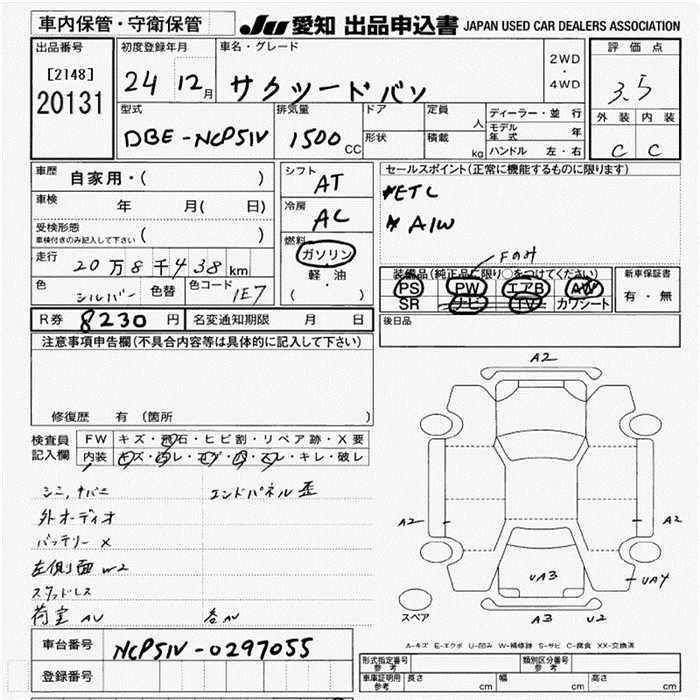 車内保管・守衛保管
JU 愛知 出品申込書 JAPAN USED CAR DEALERS ASSOCIATION
出品番号
[2148]
20131
初度登録年月
24 12月
車名・グレード
サクシードバン
2WD
・
4WD
評価点
3.5
外装 内装
C C
型式
DBE-NCP51V
排気量
1500 CC
ドア
形状
定員
人
積載
kg
ディーラー・並行
モデル年式 年
ハンドル 左・右
車歴 自家用・( )
車検 年 月( 日)
受検形態
車検付きのみ記入して下さい ( )
走行 20万8千438km
色 シルバー 色替 色コード 1E7
シフト
AT
冷房
AC
燃料
ガソリン
軽・油
( )
セールスポイント(正常に機能するものに限ります)
*ETC
*A/W
Fのみ
装備品(純正品に限り○をつけてください)
PS PW エアB AW
SR ナビ TV カワシート
新車保証書
有・無
R券 8230円 名変通知期限 月 日
後日品
注意事項申告欄(不具合内容等は具体的に記入して下さい)
修復歴 有(箇所 )
検査員
記入欄
FW キズ・飛石・ヒビ割・リペア跡・X要
内装 キズ・ヨゴレ・コゲ・穴・スレ・キレ・破レ
エンドパネル歪
外オーディオ
バッテリー×
左側面W2
スタッドレス
荷室AU
A2
A2
A2
UA3
UA4
A3
U2
スペア
A-キズ E-エクボ U-凹み W-補修跡 S-サビ C-腐食 XX-交換済
車台番号 NCP51V-0297055
登録番号
形式指定番号
参考
類別区分番号
参考
車庫証明用
参考
長さ cm 幅 cm 高さ cm